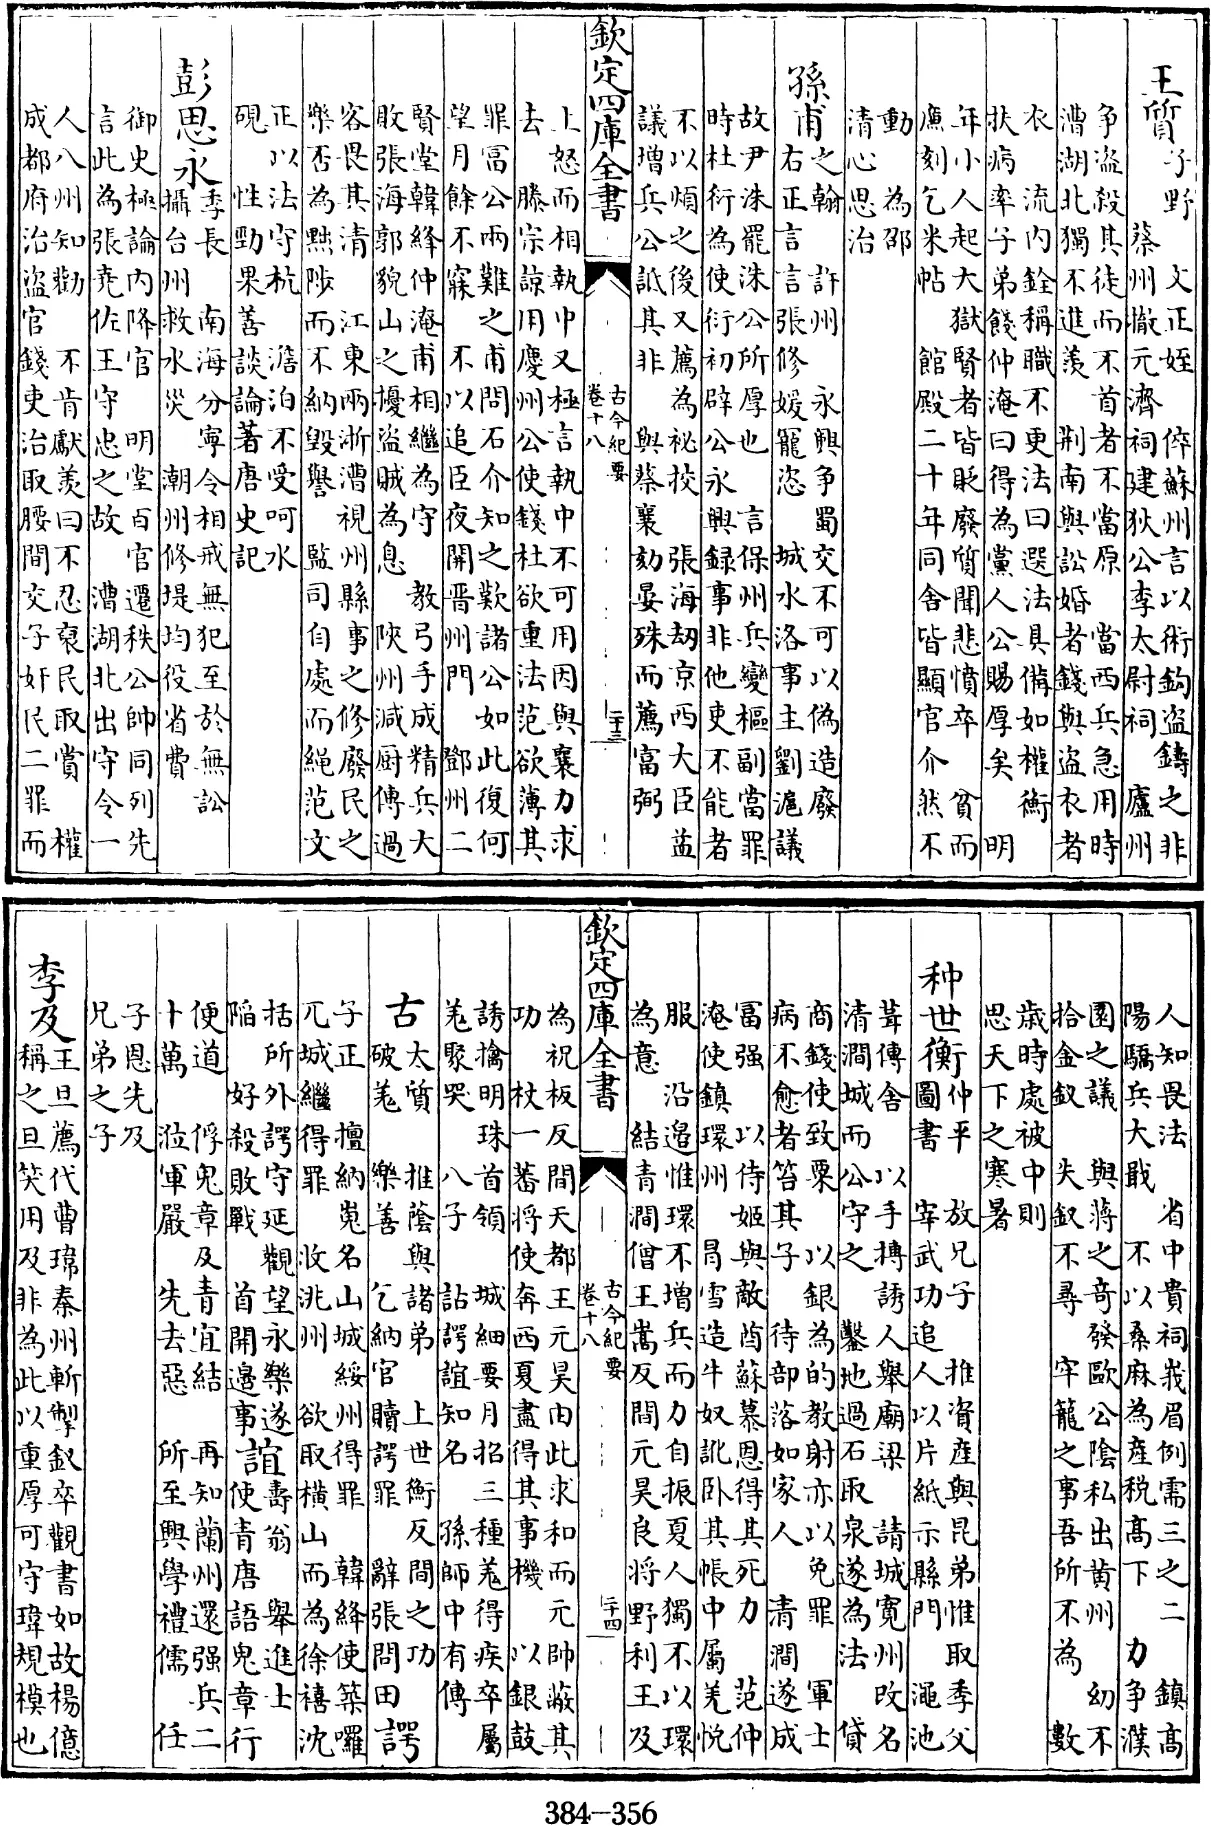 王質子野　文正姪　倅蘇州言以術鈎盜鑄之非
蔡州撤元濟祠建狄公李太尉祠　廬州
争盜殺其徒而不首者不當原　當西兵急用時
漕湖北獨不進羡　荆南與訟婚者錢與盜衣者
衣　流内銓稱職不更法曰選法具備如權衡
扶病率子弟餞仲淹曰得為黨人公賜厚矣　明
年小人起大獄賢者皆貶廢質聞悲憤卒　貧而
廪刻乞米帖　館殿二十年同舍皆顯官介然不
動　為邵
清心思治
孫甫之翰　許州　永興争蜀交不可以偽造廢
右正言言張修媛寵恣　城水洛事主劉滬議
故尹洙罷洙公所厚也　言保州兵變樞副當罪
時杜衍為使衍初辟公永興録事非他吏不能者
不以煩之後又薦為祕挍　張海刼京西大臣益
議增兵公詆其非　與蔡襄劾晏殊而薦富弼
欽定四庫全書
古今紀要
卷十八
二十三
上怒而相執中又極言執中不可用因與襄力求
去　滕宗諒用慶州公使錢杜欲重法范欲薄其
罪富公兩難之甫問石介知之歎諸公如此復何
望月餘不寐　不以追臣夜開晋州門　鄧州二
賢堂韓絳仲淹甫相繼為守　教弓手成精兵大
敗張海郭貌山之擾盜賊為息　陜州減厨傳過
客畏其清　江東兩浙漕視州縣事之修廢民之
樂否為黜陟而不納毁譽　監司自處而繩范文
正以法守杭　澹泊不受呵水
硯　性勁果善談論著唐史記
彭思永季長　南海分寧令相戒無犯至於無訟
攝台州救水災　潮州修堤均役省費
御史極論内降官　明堂百官遷秩公帥同列先
言此為張堯佐王守忠之故　漕湖北出守令一
人八州知勸　不肯獻羡曰不忍裒民取賞　權
成都府治盜官錢吏治取腰間交子奸民二罪而
人知畏法　省中貴祠峩眉例需三之二　鎮髙
陽驕兵大戢　不以桑麻為産税髙下　力争濮
園之議　與蔣之竒發歐公陰私出黄州　幼不
拾金釵　失釵不尋　牢籠之事吾所不為　數
歲時處被中則
思天下之寒暑
种世衡仲平　放兄子　推資産與昆弟惟取季父
圖書　宰武功追人以片紙示縣門　澠池
葺傳舍　以手搏誘人舉廟梁　請城寛州改名
清澗城而公守之　鑿地過石取泉遂為法　貸
商錢使致粟　以銀為的教射亦以免罪　軍士
病不愈者笞其子　待部落如家人　清澗遂成
冨强　以侍姬與敵酋蘇慕恩得其死力　范仲
淹使鎮環州　冐雪造牛奴訛卧其帳中屬羌悦
服　沿邉惟環不增兵而力自振夏人獨不以環
為意　結青澗僧王嵩反間元昊良將野利王及
欽定四庫全書
古今紀要
卷十八
二十四
為祝板反間天都王元昊由此求和而元帥蔽其
功　杖一蕃将使奔西夏盡得其事機　以銀鼓
誘擒明珠首領　城細要月招三種羌得疾卒屬
羌聚哭　八子　詁諤誼知名　孫師中有傳
古太質　推蔭與諸弟　上世衡反間之功
破羌　樂善　乞納官贖諤罪　辭張問田　諤
子正　擅納嵬名山城綏州得罪　韓絳使築囉
兀城繼得罪　收洮州　欲取横山而為徐禧沈
括所外諤守延觀望永樂遂
陷　好殺敗戰　首開邉事
誼壽翁　舉進士
使青唐語鬼章行
便道　俘鬼章及青宜結　再知蘭州還强兵二
十萬　涖軍嚴　先去惡　所至興學禮儒　任
子恩先及
兄弟之子
李及王旦薦代曹瑋秦州斬掣釵卒觀書如故楊億
稱之旦笑用及非為此以重厚可守瑋規模也
384-356